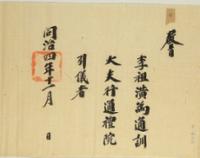 教旨
李祖潢爲通訓
大夫行通禮院
引儀者
同治四年十一月 日